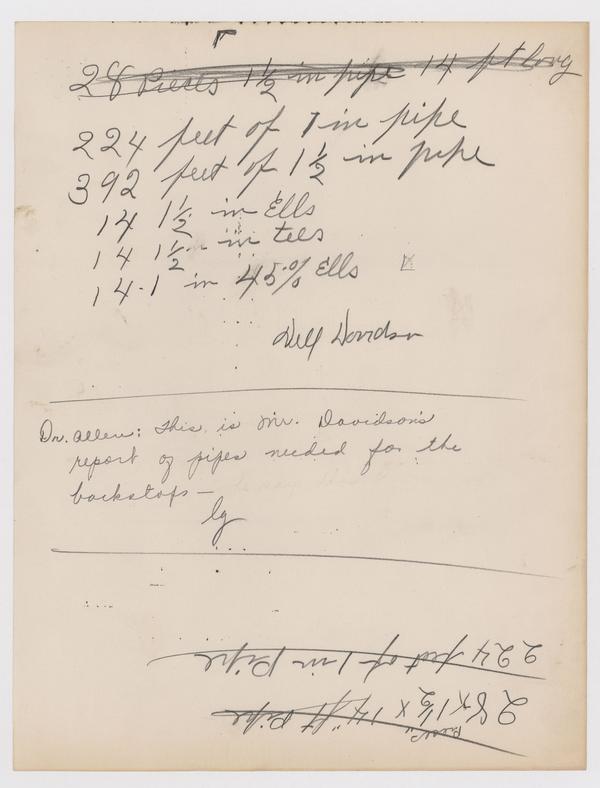 28 Pieces 1 1/2 in pipe 14 ft long
224 feet of 1 in pipe
392 feet of 1 1/2 in pipe
14 1 1/2 in Ells
14 1 1/2 in tees
14-1 in 45.0/0 Ells
Davidson
Dr. Allen: This is Mr. Davidson's
report of pipes needed for the
backstops —
lg
28 x 1 1/2 x 14" ft Pipe
224 feet of 1 in Pipe